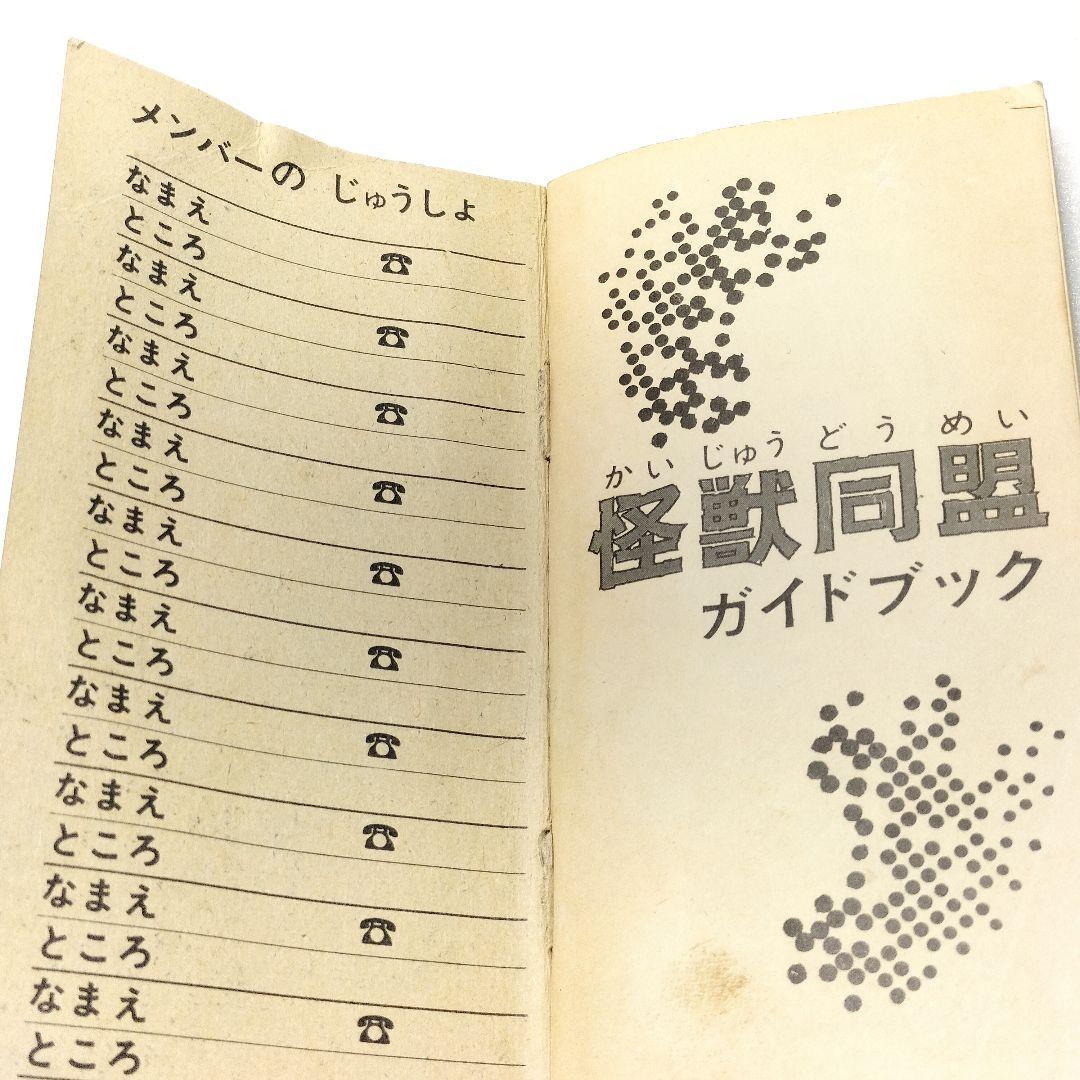 メンバーの じゅうしょ
なまえ
ところ ☎
なまえ
ところ ☎
なまえ
ところ ☎
なまえ
ところ ☎
なまえ
ところ ☎
なまえ
ところ ☎
なまえ
ところ ☎
なまえ
ところ ☎
なまえ
ところ ☎
なまえ
ところ ☎
かいじゅうどうめい
怪獣同盟
ガイドブック